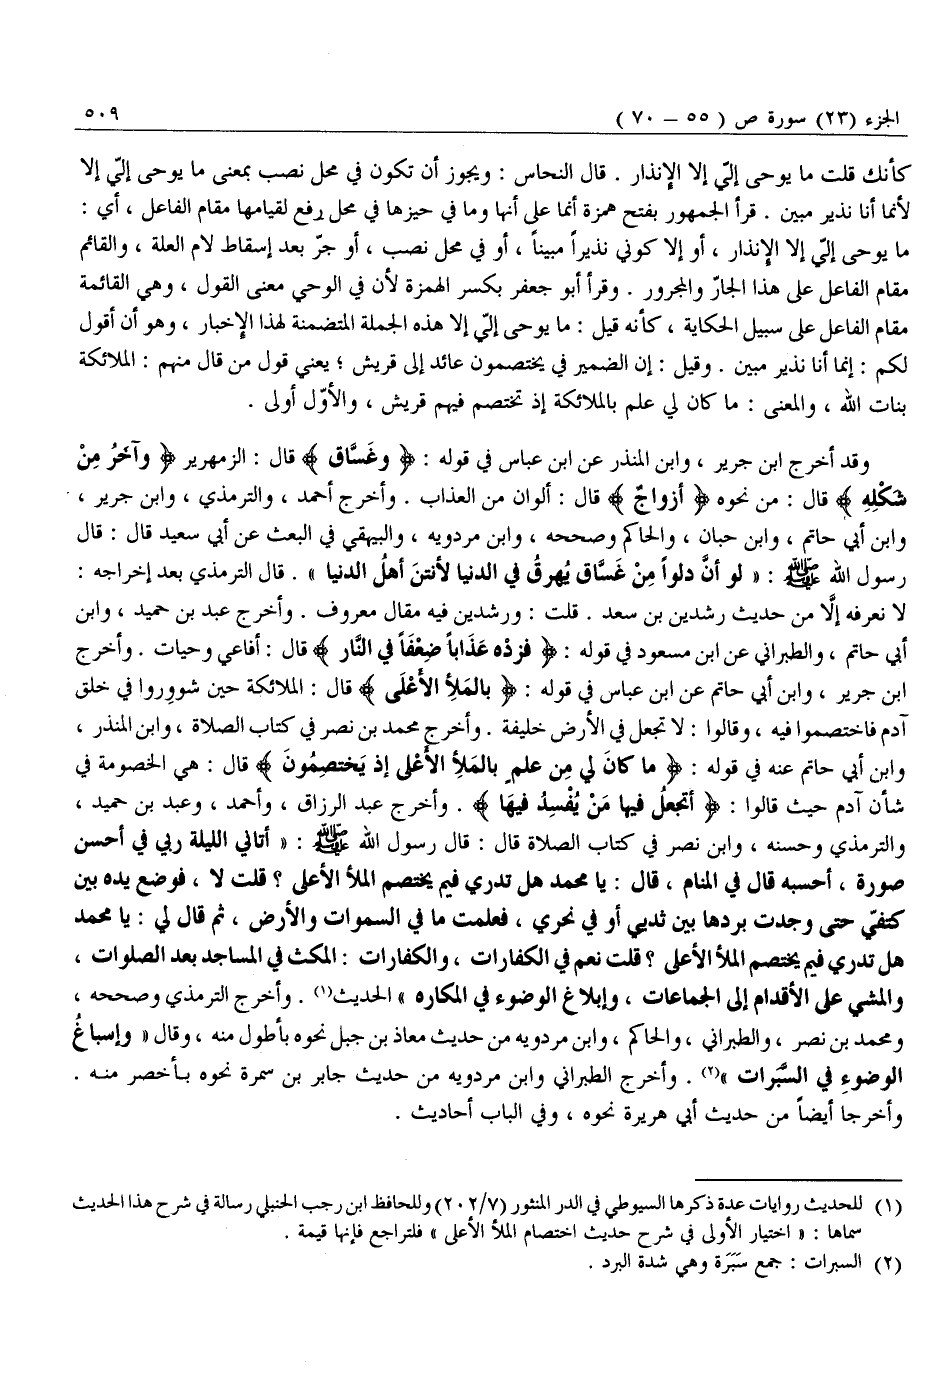 الجزء (٢٣) سورة ص ( ٥٥ – ٧٠ ) ٥٠٩
كأنك قلت ما يوحى إليّ إلا الإنذار . قال النحاس : ويجوز أن تكون في محل نصب بمعنى ما يوحى إليّ إلا
لأنما أنا نذير مبين . قرأ الجمهور بفتح همزة أنما على أنها وما في حيزها في محل رفع لقيامها مقام الفاعل ، أي :
ما يوحى إليّ إلا الإنذار ، أو إلا كوني نذيراً مبيناً ، أو في محل نصب ، أو جرّ بعد إسقاط لام العلة ، والقائم
مقام الفاعل على هذا الجارّ والمجرور . وقرأ أبو جعفر بكسر الهمزة لأن في الوحي معنى القول ، وهي القائمة
مقام الفاعل على سبيل الحكاية ، كأنه قيل : ما يوحى إليّ إلا هذه الجملة المتضمنة لهذا الإخبار ، وهو أن أقول
لكم : إنما أنا نذير مبين . وقيل : إن الضمير في يختصمون عائد إلى قريش ؛ يعني قول من قال منهم : الملائكة
بنات الله ، والمعنى : ما كان لي علم بالملائكة إذ تختصم فيهم قريش ، والأوّل أولى .
وقد أخرج ابن جرير ، وابن المنذر عن ابن عباس في قوله : ﴿ وغَسَّاق ﴾ قال : الزمهرير ﴿ وآخَرُ مِنْ
شَكْلِهِ ﴾ قال : من نحوه ﴿ أزواجٌ ﴾ قال : ألوان من العذاب . وأخرج أحمد ، والترمذي ، وابن جرير ،
وابن أبي حاتم ، وابن حبان ، والحاكم وصححه ، وابن مردويه ، والبيهقي في البعث عن أبي سعيد قال : قال
رسول الله ﷺ : « لو أنَّ دلواً مِنْ غَسَّاق يُهرقُ في الدنيا لأنتنَ أهلُ الدنيا » . قال الترمذي بعد إخراجه :
لا نعرفه إلَّا من حديث رشدين بن سعد . قلت : ورشدين فيه مقال معروف . وأخرج عبد بن حميد ، وابن
أبي حاتم ، والطبراني عن ابن مسعود في قوله : ﴿ فزدْه عَذَاباً ضِعْفَاً في النَّار ﴾ قال : أفاعي وحيات . وأخرج
ابن جرير ، وابن أبي حاتم عن ابن عباس في قوله : ﴿ بالمَلأِ الأَعْلَى ﴾ قال : الملائكة حين شووِروا في خلق
آدم فاختصموا فيه ، وقالوا : لا تجعل في الأرض خليفة . وأخرج محمد بن نصر في كتاب الصلاة ، وابن المنذر ،
وابن أبي حاتم عنه في قوله : ﴿ ما كانَ لي مِن علمٍ بالمَلأِ الأَعْلى إذ يَختصمُونَ ﴾ قال : هي الخصومة في
شأن آدم حيث قالوا : ﴿ أتجعلُ فيها مَنْ يُفْسِدُ فيهَا ﴾ . وأخرج عبد الرزاق ، وأحمد ، وعبد بن حميد ،
والترمذي وحسنه ، وابن نصر في كتاب الصلاة قال : قال رسول الله ﷺ : « أتاني الليلة ربي في أحسن
صورة ، أحسبه قال في المنام ، قال : يا محمد هل تدري فيم يختصم الملأ الأعلى ؟ قلت لا ، فوضع يده بين
كتفيّ حتى وجدت بردها بين ثديي أو في نحري ، فعلمت ما في السموات والأرض ، ثم قال لي : يا محمد
هل تدري فيم يختصم الملأ الأعلى ؟ قلت نعم في الكفارات ، والكفارات : المكث في المساجد بعد الصلوات ،
والمشي على الأقدام إلى الجماعات ، وإبلاغ الوضوء في المكاره » الحديث(١) . وأخرج الترمذي وصححه ،
ومحمد بن نصر ، والطبراني ، والحاكم ، وابن مردويه من حديث معاذ بن جبل نحوه بأطول منه ، وقال « وإسباغُ
الوضوءِ في السَّبَرات »(٢) . وأخرج الطبراني وابن مردويه من حديث جابر بن سمرة نحوه بأخصر منه .
وأخرجا أيضاً من حديث أبي هريرة نحوه ، وفي الباب أحاديث .
(١) للحديث روايات عدة ذكرها السيوطي في الدر المنثور (٢٠٢/٧) وللحافظ ابن رجب الحنبلي رسالة في شرح هذا الحديث
سماها : « اختيار الأولى في شرح حديث اختصام الملأ الأعلى » فلتراجع فإنها قيمة .
(٢) السبرات : جمع سَبَرَة وهي شدة البرد .